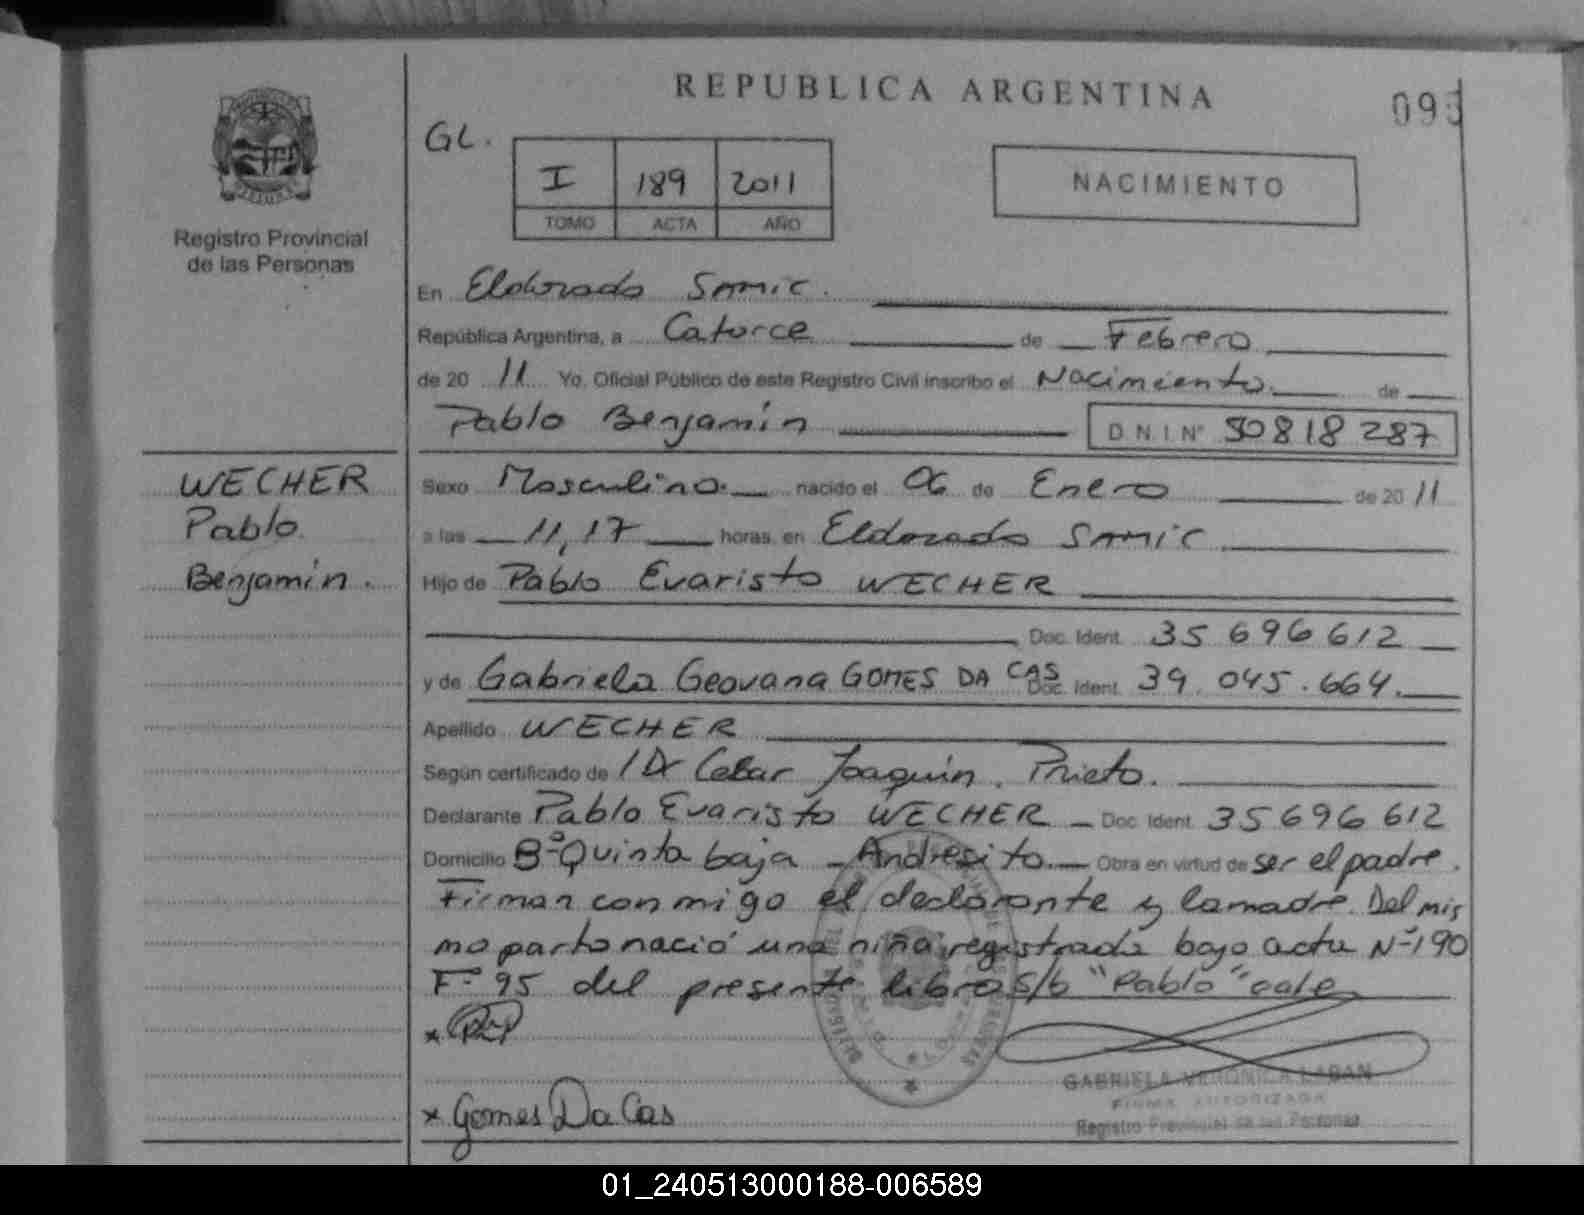 REPUBLICA ARGENTINA
095
GL.
I 189 2011
TOMO ACTA AÑO
NACIMIENTO
Registro Provincial
de las Personas
En Eldorado SAMIC.
República Argentina, a Catorce de Febrero
de 20 11 Yo, Oficial Público de este Registro Civil inscribo el Nacimiento. de
Pablo Benjamín D.N.I.N° 50818287
WECHER
Pablo
Benjamín.
Sexo Masculino. nacido el 06 de Enero de 20 11
a las 11,17 horas, en Eldorado SAMIC
Hijo de Pablo Evaristo WECHER
Doc. Ident. 35 696 612
y de Gabriela Geovana GOMES DA CAS Doc. Ident. 39.045.664.
Apellido WECHER
Según certificado de 1 Dr Cesar Joaquín. Prieto.
Declarante Pablo Evaristo WECHER Doc. Ident. 35696612
Domicilio B° Quinta baja - Andresito. Obra en virtud de ser el padre.
Firman conmigo el declarante y la madre. Del mis
mo parto nació una niña registrada bajo acta N° 190
F° 95 del presente libro S/b "Pablo" vale
GABRIELA VERONICA LABAN
FIRMA AUTORIZADA
Registro Provincial de las Personas
x Gomes Da Cas
01_240513000188-006589